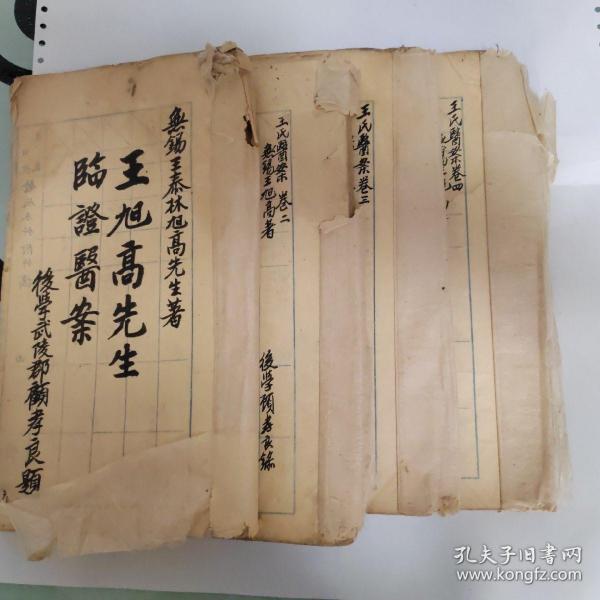 無錫王泰林旭高先生著
王旭高先生
臨證醫案
後學武陵郡顧孝良題
王氏醫案 卷二
無錫王旭高著
後學顧孝良錄
王氏醫案卷三
王氏醫案卷四
孔夫子旧书网
www.kongfz.com